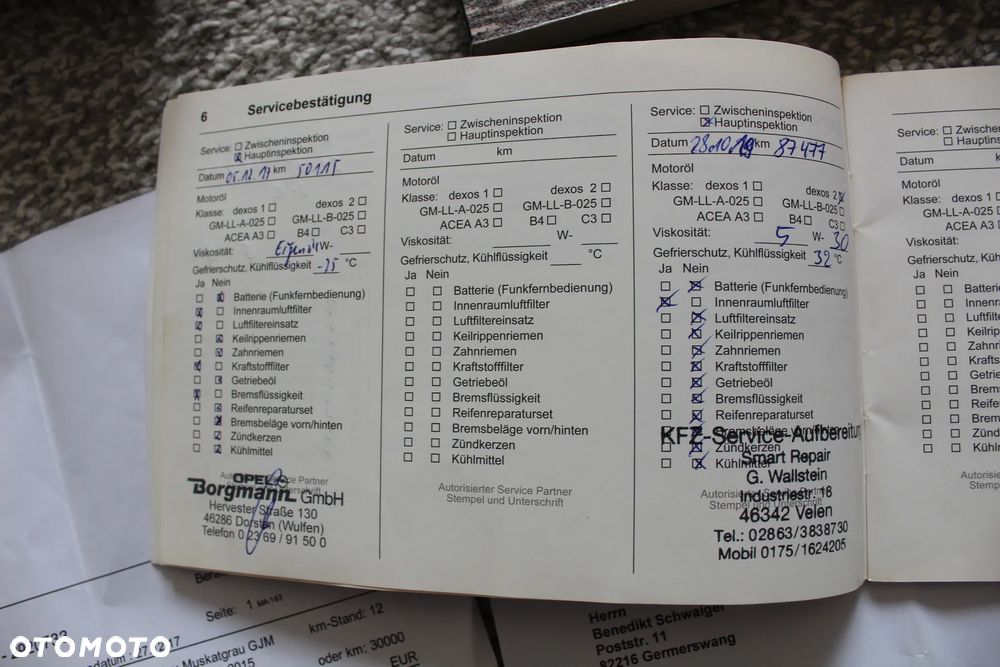 6 Servicebestätigung
Service: Zwischeninspektion
Hauptinspektion
Datum 05.12.17 km 50115
Motoröl
Klasse: dexos 1 dexos 2
GM-LL-A-025 GM-LL-B-025
ACEA A3 B4 C3
Viskosität: W-
Gefrierschutz, Kühlflüssigkeit °C
Ja Nein
Batterie (Funkfernbedienung)
Innenraumluftfilter
Luftfiltereinsatz
Keilrippenriemen
Zahnriemen
Kraftstofffilter
Getriebeöl
Bremsflüssigkeit
Reifenreparaturset
Bremsbeläge vorn/hinten
Zündkerzen
Kühlmittel
Autorisierter Service Partner
Stempel und Unterschrift
OPEL
Borgmann GmbH
Hervester Straße 130
46286 Dorsten (Wulfen)
Telefon 0 23 69 / 91 50 0
Service: Zwischeninspektion
Hauptinspektion
Datum km
Motoröl
Klasse: dexos 1 dexos 2
GM-LL-A-025 GM-LL-B-025
ACEA A3 B4 C3
Viskosität: W-
Gefrierschutz, Kühlflüssigkeit °C
Ja Nein
Batterie (Funkfernbedienung)
Innenraumluftfilter
Luftfiltereinsatz
Keilrippenriemen
Zahnriemen
Kraftstofffilter
Getriebeöl
Bremsflüssigkeit
Reifenreparaturset
Bremsbeläge vorn/hinten
Zündkerzen
Kühlmittel
Autorisierter Service Partner
Stempel und Unterschrift
Service: Zwischeninspektion
Hauptinspektion
Datum 28.10.19 km 87477
Motoröl
Klasse: dexos 1 dexos 2
GM-LL-A-025 GM-LL-B-025
ACEA A3 B4 C3
Viskosität: 5 W- 30
Gefrierschutz, Kühlflüssigkeit 32 °C
Ja Nein
Batterie (Funkfernbedienung)
Innenraumluftfilter
Luftfiltereinsatz
Keilrippenriemen
Zahnriemen
Kraftstofffilter
Getriebeöl
Bremsflüssigkeit
Reifenreparaturset
Bremsbeläge vorn/hinten
Zündkerzen
Kühlmittel
Autorisierter Service Partner
Stempel und Unterschrift
KFZ-Service-Aufbereitung
Smart Repair
G. Wallstein
Industriestr. 18
46342 Velen
Tel.: 02863/3838730
Mobil 0175/1624205
Service: Zwischeninspektion
Hauptinspektion
Datum
Motoröl
Klasse: dexos 1
GM-LL-A-025
ACEA A3
Viskosität:
Gefrierschutz, Kühlflü
Ja Nein
Batterie
Innenra
Luftfilte
Keilripp
Zahnri
Kraftsto
Getrieb
Bremsf
Reifen
Bremsb
Zündke
Kühlmi
Autorisi
Stemp
Seite: 1
km-Stand: 12
Muskatgrau GJM
oder km: 30000
2015
EUR
Herrn
Benedikt Schwaiger
Poststr. 11
82216 Germerswang
OTOMOTO